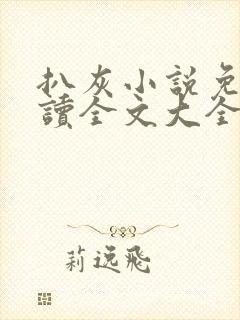 扒灰小說免
讀全文大全
莉逸飛